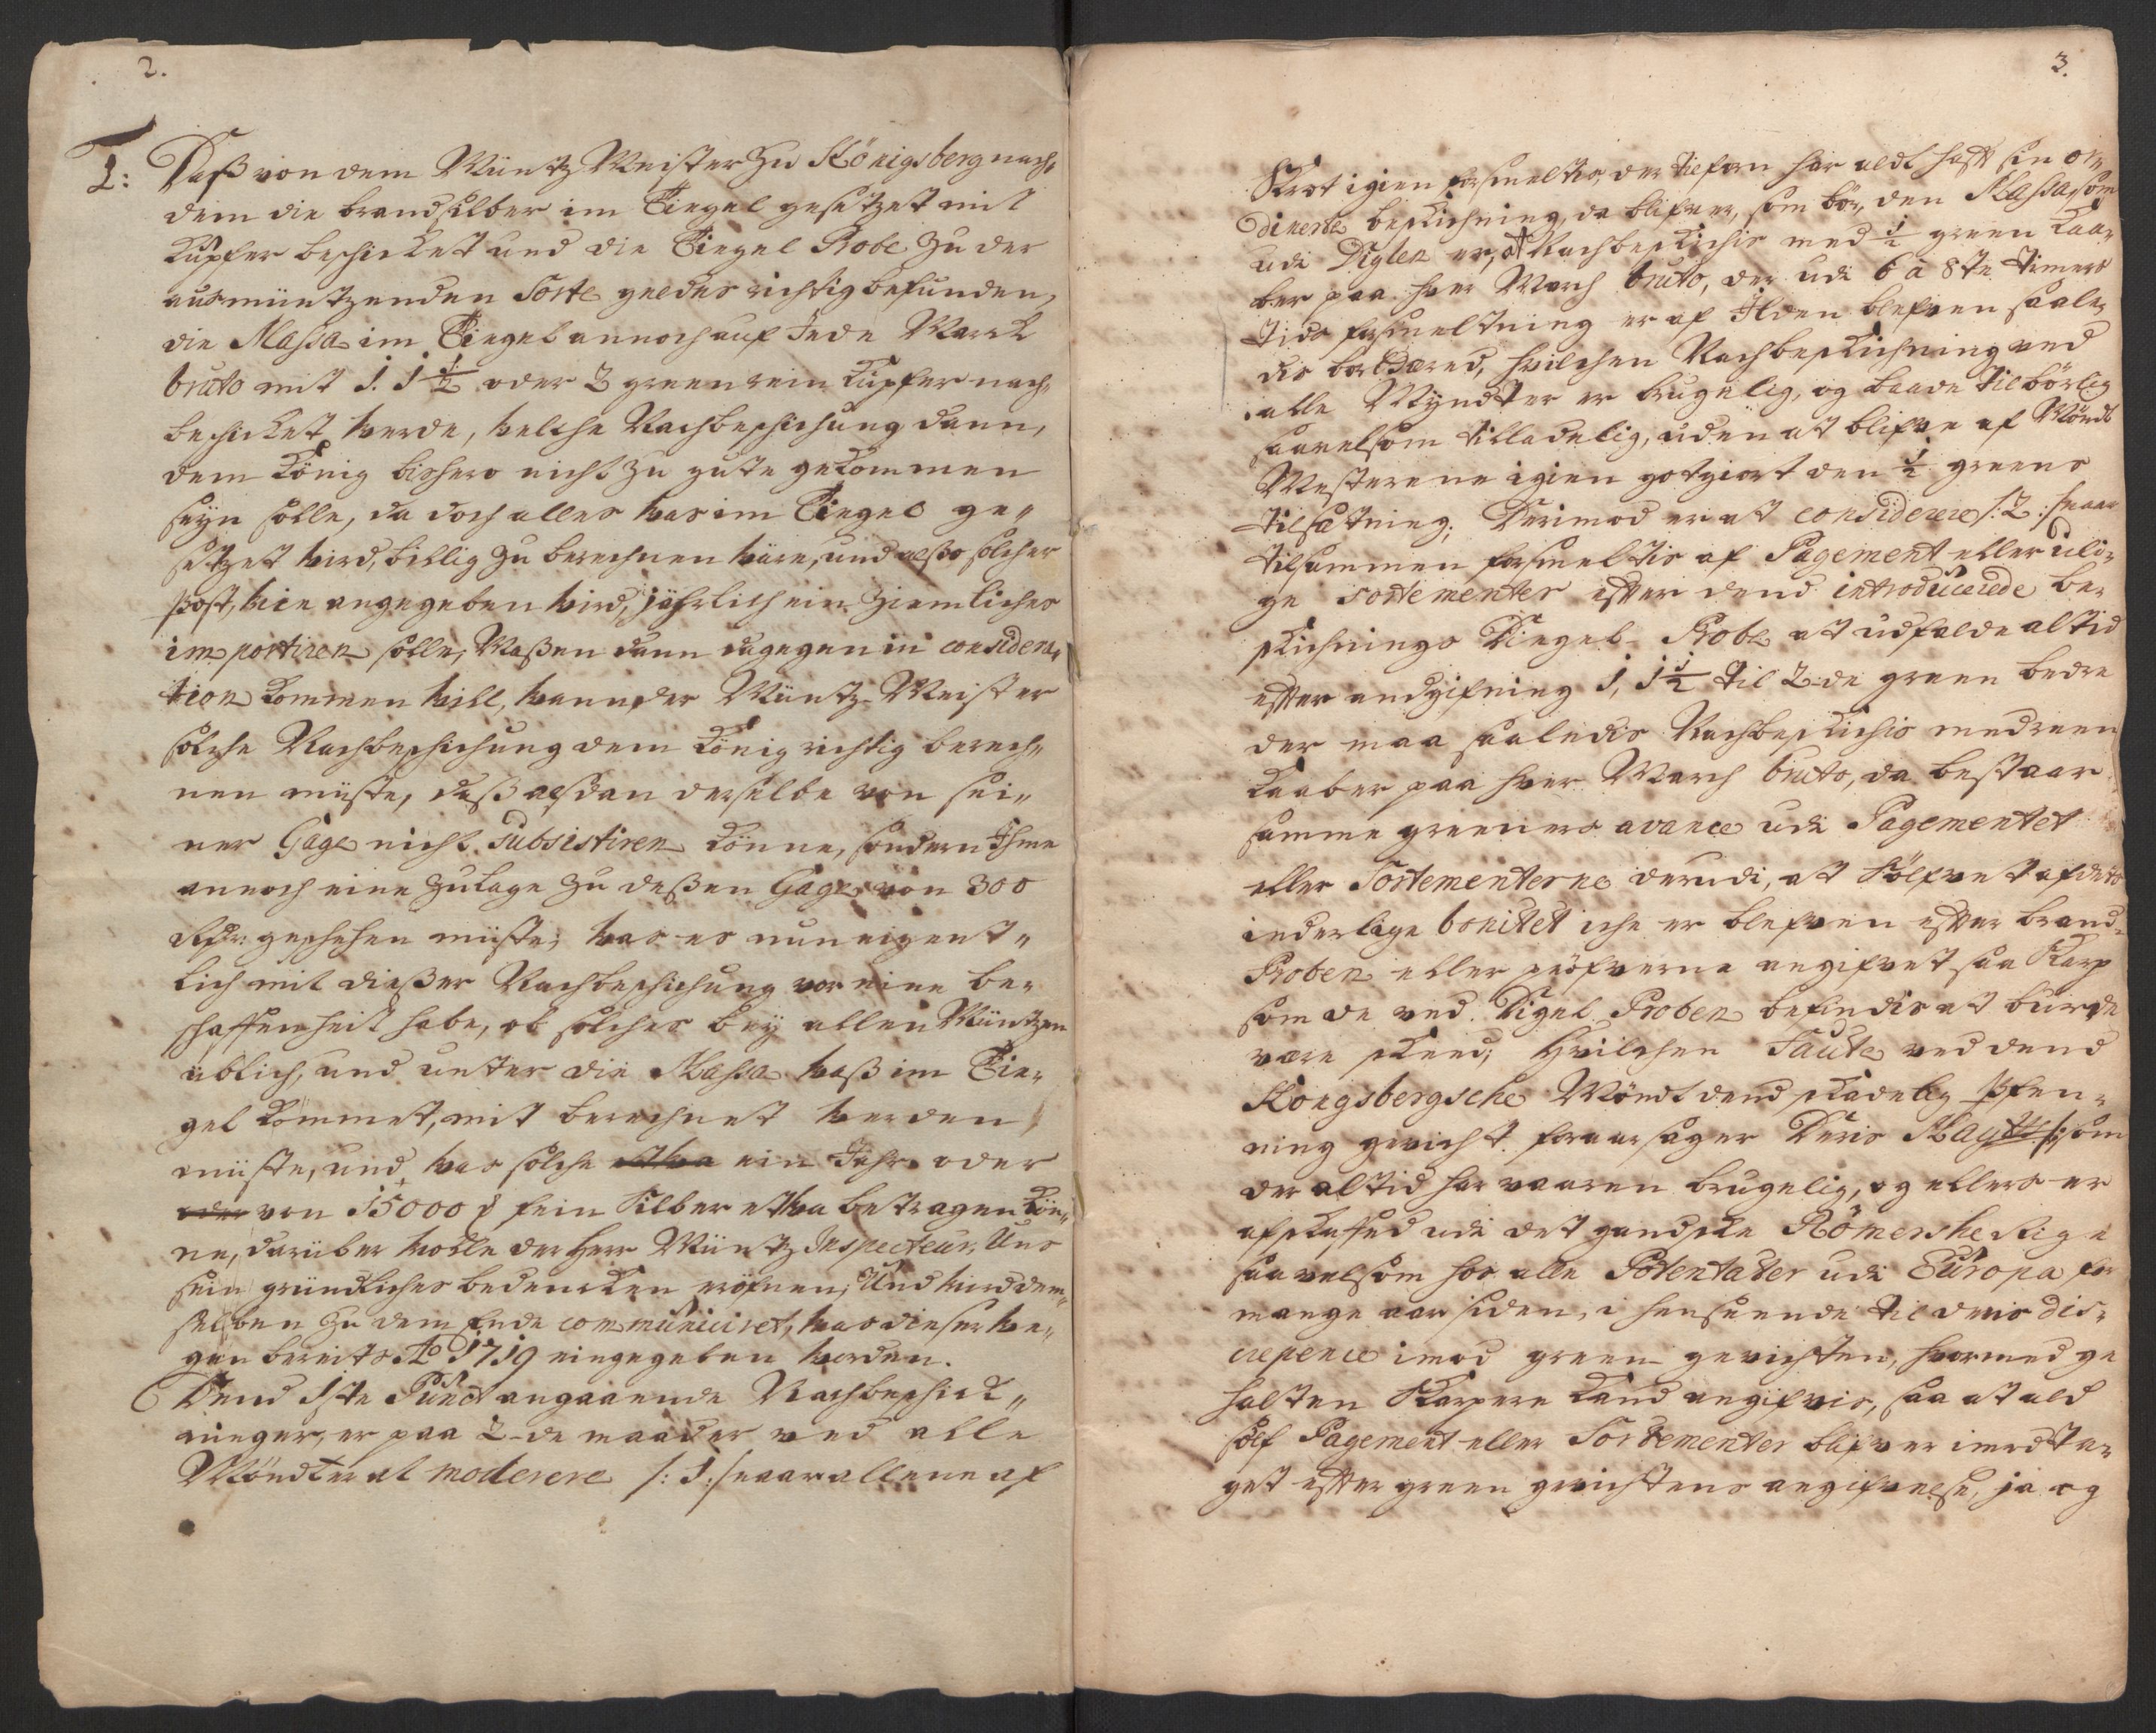 2.
1: Daß von dem Müntz Meister zu Königsberg nach„
dem die brandsilber im Tiegel gesetzet mit
Kupfer beschicket und die Tiegel Probe zu der
ausmüntzenden Sorte geldes richtig befunden,
die Massa im Tiegel annoch auf Jede Marck
bruto mit 1. 1½ oder 2 green rein Kupfer nach„
beschicket werde, welche Nachbeschichung dann,
dem König bishero nicht zu gute gekommen
seyn solle, da doch alles was im Tiegel ge„
setzet wird, billig zu berechnen wäre, und also solcher
post, wie angegeben wird, jährlich ein ziemliches
importiren solle, Maßen dann dagegen in considera„
tion kommen will, wann der Müntz-Meister
solche Nachbeschichung dem König richtig berech„
nen müste, daß alsdan derselbe von sei„
ner Gage nicht subsistiren könne, sondern Ihme
annoch eine Zulage zu deßen Gage von 300
Rdr: geschehen müste; was es nun eigent„
lich mit dießer Nachbeschichung vor eine be„
schaffenheit habe, ob solches bey allen Müntzen
üblich, und unter die Massa was im Tie„
gel kommet, mit berechnet werden
müste, und was solche etwa ein Jahr oder
oder von 15000 # fein Silber etwa betragen kön„
ne, darüber wolle der Herr Müntz Inspecteur Uns
sein gründliches bedencken eröfnen; Und wird dem„
selben zu dem Ende communiciret, was dieser we„
gen bereits Ao 1719 eingegeben worden.
Dend 1ste Punct angaaende Nachbeschick„
ninger, er paa 2-de maader ved alle
Möndter at moderere /: 1:/ naar allene af
3.
Skrot igien forsmeltis, der tilforn har aldt hafft sin or„
dinerte beskichning, da blifver, som bör, den Massa, som
udi Diglen er, at Nachbeskichis med ½ green kaa„
ber paa hver March bruto, der udi 6 à 8te timers
tids forsmeltning er af Ilden blefven saale„
dis bortdæred, hvilchen Nachbeskichning ved
alle Myndter er brugelig, og baade tilbörlig
saavelsom tilladelig, uden at blifve af Möndt
Mesterene igien gotgiort den ½ greens
tilsætning; Derimod er at considerere /:2:/ naar
tilsammen forsmeltis af Pagement eller uli„
ge sortementer effter dend introducerede be„
skichnings Diegel-Probe at udfalde altid
effter andgifning 1, 1½ til 2-de green bedre
der maa saaledis Nachbeskichis med reen
kaaber paa hver March bruto, da bestaar
samme greeners avance udi Pagementet
eller Sortementerne derudi, at Sölfvet afdets
inderlige bonitet iche er blefven effter brand„
Proben eller pröfverne angifvet saa skarp
som de ved Digel Proben befindis at burde
være skeed; Hvilchen Faute ved dend
Kongsbergsche Möndt dend skadelig Pfen„
ning gevicht foraarsager Deris Mayts:, som
der altid har vaaren brugelig, og ellers er
afskaffed udi det gandske Römerske Rige
saavelsom hos alle Potentater udi Europa for
mange aar siden, i henseende til dens dis„
crepence imod green gevichten, hvormed ge
halten skarpere kand angifvis, saa at ald
sölf Pagement eller Sortementer blifver imodta„
get effter green gevichtens angifvelse, ja og